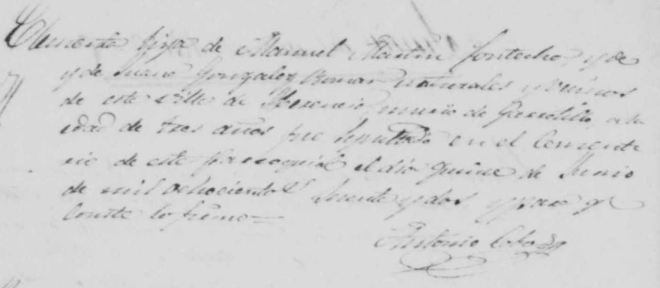 Clemencia hija de Manuel Martin Gontecho, y de
y de Juana Gonzalez Bernar naturales y vecinos
de este Valle de murio de Garrotillo, a la
edad de tres años fue sepultada en el Cemente
rio de esta Parroquial el dia quince de Junio
de mil ochocientos y dos y para q
Conste lo firmo=
Antonio